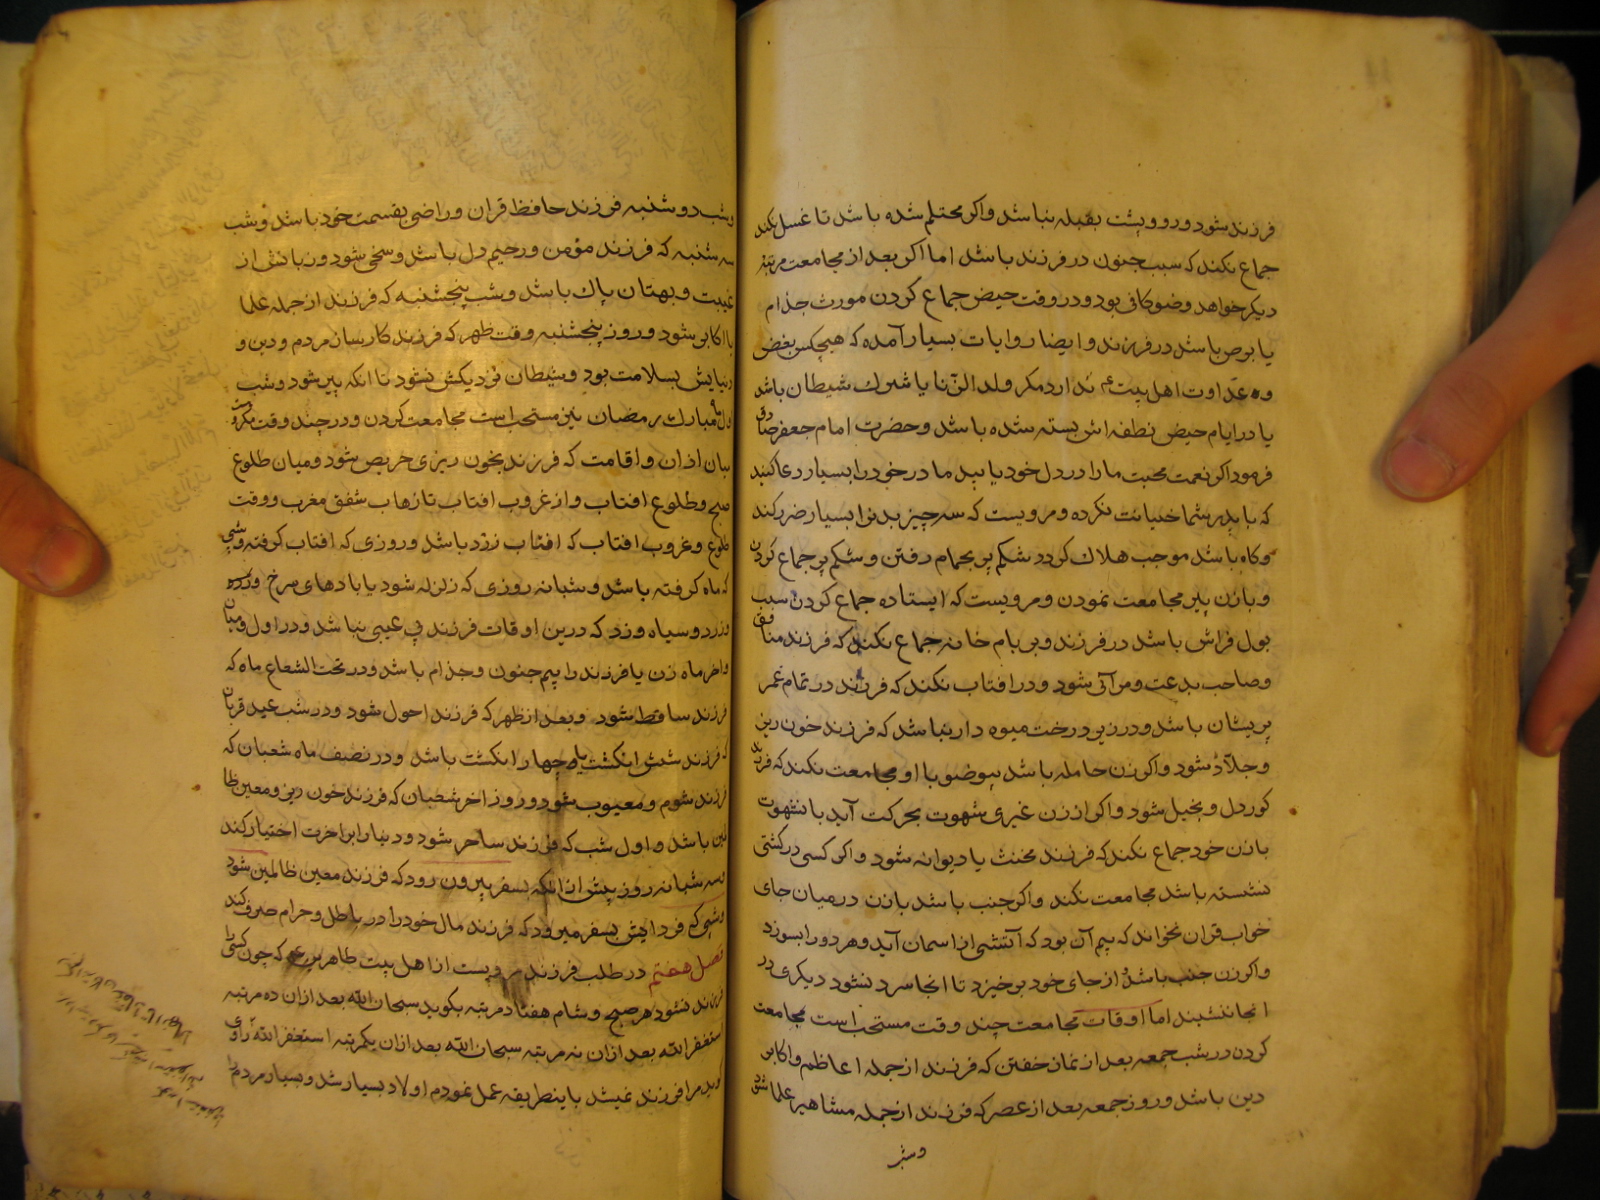 فرزند شود و رو و پشت بقبله نباشد و اکر محتلم شده باشد تا غسل نکند
جماع نکند که سبب جنون در فرزند باشد اما اکر بعد از مجامعت مرتبه
دیکر خواهد وضو کافی بود و در وقت حیض جماع کردن مورث جذام
یا برص باشد در فرزند و ایضا روایات بسیار آمده که هیچکس بغض
و عداوت اهل بیت ع ندارد مکر ولد الزنا یا شرک شیطان باشد
یا در ایام حیض نطفه اش بسته شده باشد و حضرت امام جعفر صادق
فرمود اکر نعمت محبت ما را در دل خود یابید مادر خود را بسیار دعا کنید
که با پدر شما خیانت نکرده و مرویست که سه چیز بدنرا بسیار ضرر کند
و کاه باشد موجب هلاک کردد شکم پر بحمام رفتن و شکم پر جماع کردن
و با زن پیر مجامعت نمودن و مرویست که ایستاده جماع کردن سبب
بول فراش باشد در فرزند و بر بام خانه جماع نکند که فرزند منافق
و صاحب بدعت و مرآئی شود و در افتاب نکند که فرزند در تمام عمر
پریشان باشد و در زیر درخت میوه دار نباشد که فرزند خون ریز
و جلاد شود و اکر زن حامله باشد بیوضو با او مجامعت نکند که فرزند
کور دل و بخیل شود و اکر از زن غیری شهوت بحرکت آید با نشهوت
با زن خود جماع نکند که فرزند مخنث یا دیوانه شود و اکر کسی در کشتی
نشسته باشد مجامعت نکند و اکر جنب باشد با زن در میان جای
خواب قران نخواند که بیم آن بود که آتشی از اسمان آید و هر دو را بسوزد
و اکر زن جنب باشد از جای خود برخیزد تا انجا سرد نشود دیکری در
انجا ننشیند اما اوقات مجامعت چند وقت مستحب است مجامعت
کردن در شب جمعه بعد از نماز خفتن که فرزند از جمله اعاظم و اکابر
دین باشد و روز جمعه بعد از عصر که فرزند از جمله مشاهیر علما شود
و شب
و شب دوشنبه فرزند حافظ قران و راضی بقسمت خود باشد و شب
سه شنبه که فرزند مؤمن و رحیم دل باشد و سخی شود و زبانش از
غیبت و بهتان پاک باشد و شب پنجشنبه که فرزند از جمله علما
یا اکابر شود و روز پنجشنبه وقت ظهر که فرزند کارسان مردم و دین و
دنیایش بسلامت بود و شیطان نزدیکش نشود تا انکه پیر شود و شب
اول ماه مبارک رمضان نیز مستحب است مجامعت کردن و در چند وقت مکروه
میان اذان و اقامت که فرزند بخون ریزی حریص شود و میان طلوع
صبح و طلوع افتاب و از غروب افتاب تا زهاب شفق مغرب و وقت
طلوع و غروب افتاب که افتاب زرد باشد و روزی که افتاب کرفته و شبی
که ماه کرفته باشد و شبانه روزی که زلزله شود یا بادهای سرخ و زرد
و زرد و سیاه وزد که درین اوقات فرزند بی عیبی نباشد و در اول و میان
و اخر ماه زن یا فرزند را بیم جنون و جذام باشد و در تحت الشعاع ماه که
فرزند ساقط شود و بعد از ظهر که فرزند احول شود و در شب عید قربان
که فرزند شش انکشت یا چهار انکشت باشد و در نصف ماه شعبان که
فرزند شوم و معیوب شود و روز اخر شعبان که فرزند خون ریز و معین ظا
لمین باشد و اول شب که فرزند ساحر شود و دنیا را بر اخرت اختیار کند
و سه شبانه روز پیش از انکه بسفر بیرون رود که فرزند معین ظالمین شود
و شبی که فردایش بسفر میرود که فرزند مال خود را در باطل و حرام صرف کند
فصل هفتم در طلب فرزند مرویست از اهل بیت طاهرین ع که چون کسی را
فرزند نشود هر صبح و شام هفتاد مرتبه بکوید سبحان الله بعد ازان ده مرتبه
استغفر الله بعد ازان نه مرتبه سبحان الله بعد ازان یکمرتبه استغفر الله راوی
کوید مرا فرزند نمیشد باینطریقه عمل نمودم اولاد بسیار شد و بسیار مردم را